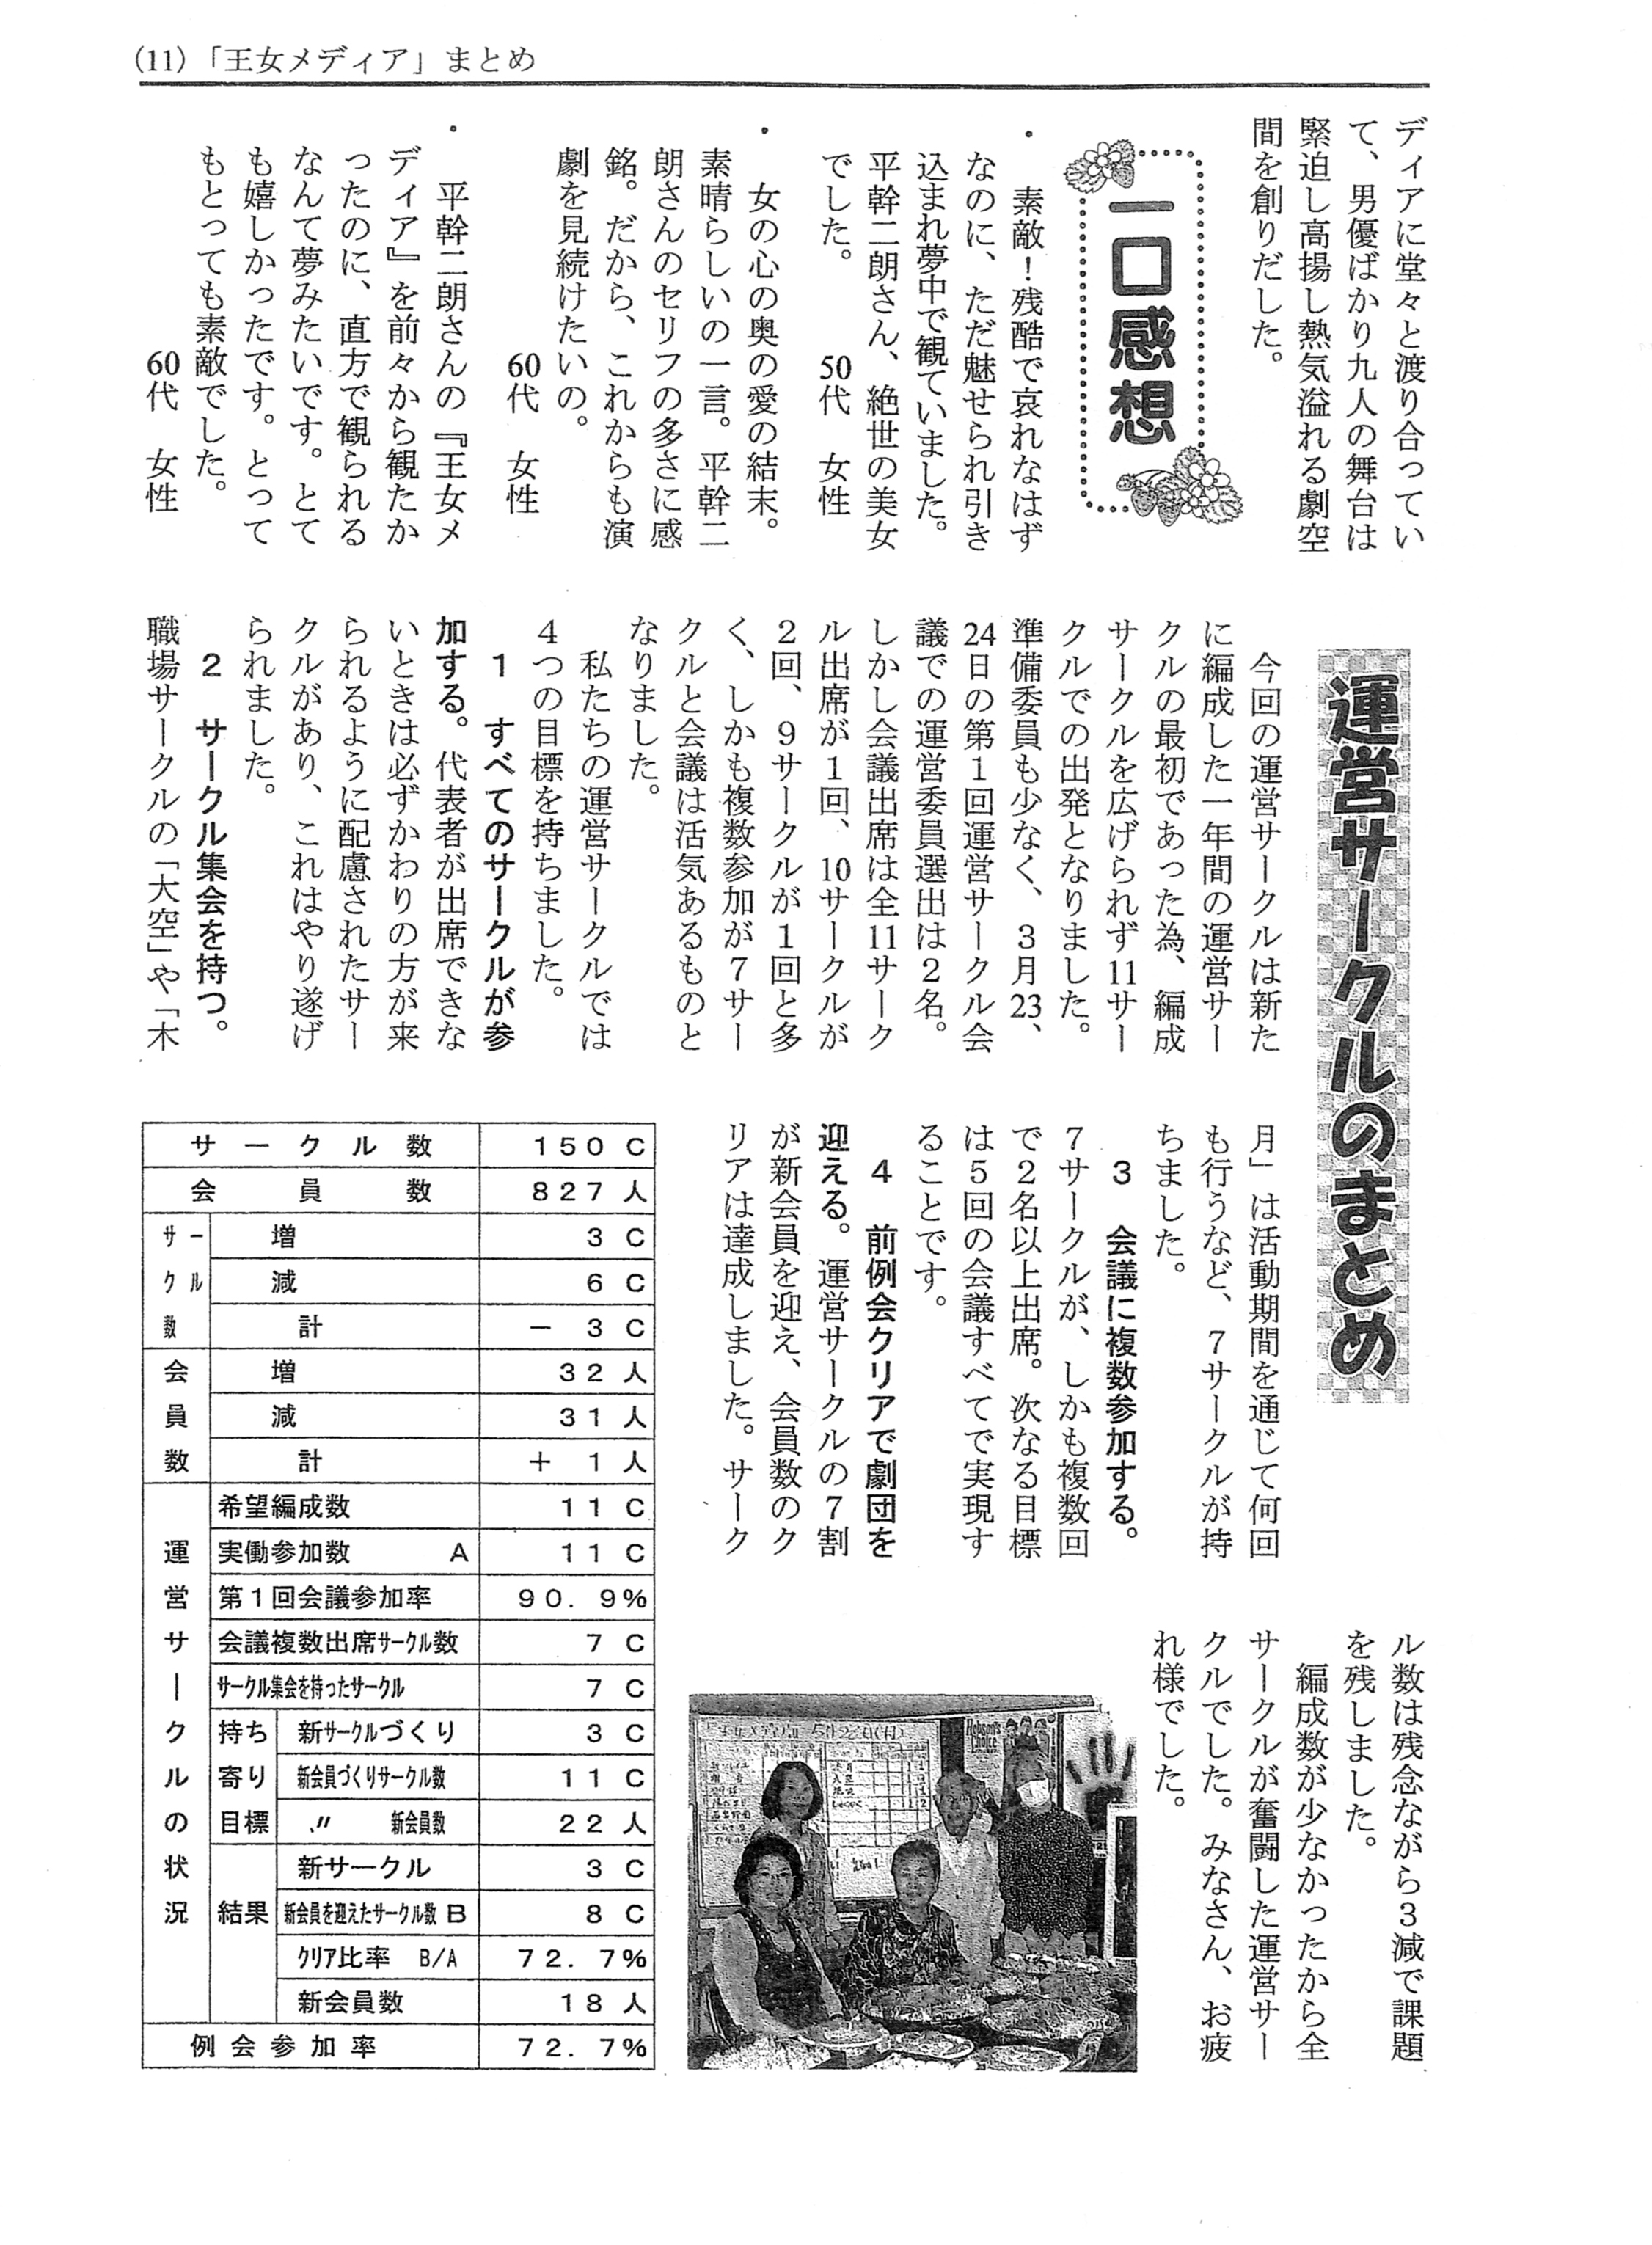 (11)「王女メディア」まとめ
ディアに堂々と渡り合ってい
て、男優ばかり九人の舞台は
緊迫し高揚し熱気溢れる劇空
間を創りだした。
一口感想
・ 素敵！残酷で哀れなはず
なのに、ただ魅せられ引き
込まれ夢中で観ていました。
平幹二朗さん、絶世の美女
でした。 50代 女性
・ 女の心の奥の愛の結末。
素晴らしいの一言。平幹二
朗さんのセリフの多さに感
銘。だから、これからも演
劇を見続けたいの。
60代 女性
・ 平幹二朗さんの『王女メ
ディア』を前々から観たか
ったのに、直方で観られる
なんて夢みたいです。とて
も嬉しかったです。とって
もとっても素敵でした。
60代 女性
運営サークルのまとめ
今回の運営サークルは新た
に編成した一年間の運営サー
クルの最初であった為、編成
サークルを広げられず11サー
クルでの出発となりました。
準備委員も少なく、3月23、
24日の第1回運営サークル会
議での運営委員選出は2名。
しかし会議出席は全11サーク
ル出席が1回、10サークルが
2回、9サークルが1回と多
く、しかも複数参加が7サー
クルと会議は活気あるものと
なりました。
私たちの運営サークルでは
4つの目標を持ちました。
1 すべてのサークルが参
加する。代表者が出席できな
いときは必ずかわりの方が来
られるように配慮されたサー
クルがあり、これはやり遂げ
られました。
2 サークル集会を持つ。
職場サークルの「大空」や「木
月」は活動期間を通じて何回
も行うなど、7サークルが持
ちました。
3 会議に複数参加する。
7サークルが、しかも複数回
で2名以上出席。次なる目標
は5回の会議すべてで実現す
ることです。
4 前例会クリアで劇団を
迎える。運営サークルの7割
が新会員を迎え、会員数のク
リアは達成しました。サーク
ル数は残念ながら3減で課題
を残しました。
編成数が少なかったから全
サークルが奮闘した運営サー
クルでした。みなさん、お疲
れ様でした。
サークル数 150C
会員数 827人
サークル数
増 3C
減 6C
計 － 3C
会員数
増 32人
減 31人
計 ＋ 1人
運営サークルの状況
希望編成数 11C
実働参加数 A 11C
第1回会議参加率 90.9%
会議複数出席サークル数 7C
サークル集会を持ったサークル 7C
持ち寄り目標
新サークルづくり 3C
新会員づくりサークル数 11C
〃 新会員数 22人
結果
新サークル 3C
新会員を迎えたサークル数 B 8C
クリア比率 B/A 72.7%
新会員数 18人
例会参加率 72.7%
Hobson's
Choice